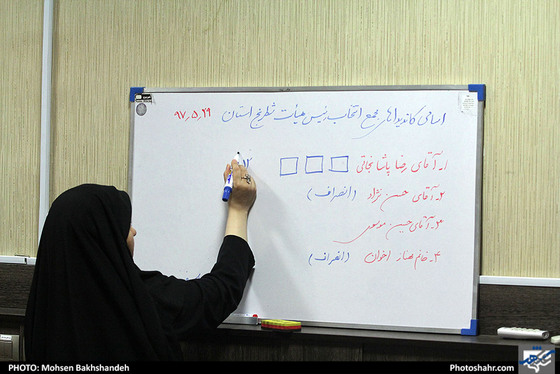 اسامی کاندیداهای مجمع انتخاب رئیس هیأت شطرنج استان ۹۷٫۵٫۲۹
۱ـ آقای رضا پاشا نجاتی
۲ـ آقای حسن نژاد (انصراف)
۳ـ آقای حسین موسوی
۴ـ خانم مهناز اخوان (انصراف)
PHOTO: Mohsen Bakhshandeh
Photoshahr.com